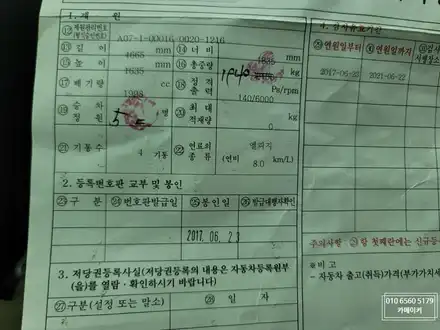 1. 제 원
⑫ 제원관리번호 (형식승인번호) A07-1-00016-0020-1216
⑬ 길 이 4665 mm ⑭ 너 비 1835 mm
⑮ 높 이 1635 mm ⑯ 총중량 1940 kg
⑰ 배기량 1998 cc ⑱ 정격출력 140/6000 Ps/rpm
⑲ 승차정원 5 명 ⑳ 최대적재량 0 kg
㉑ 기통수 4 기통 ㉒ 연료의 종류 엘피지 (연비 8.0 km/L)
2. 등록번호판 교부 및 봉인
㉓ 구 분 ㉔ 번호판발급일 ㉕ 봉인일 ㉖ 발급대행자확인
2017. 06. 23
3. 저당권등록사실(저당권등록의 내용은 자동차등록원부
(을)를 열람 · 확인하시기 바랍니다)
㉗ 구분(설정 또는 말소) ㉘ 일 자
㉙ 연월일부터 ㉚ 연월일까지 ㉛ 검사 시행장소
2017-06-22 2021-06-22
란 첫째란에는 신규등
※비 고
- 자동차 출고(취득)가격(부가가치세
010 6560 5179
카메이커